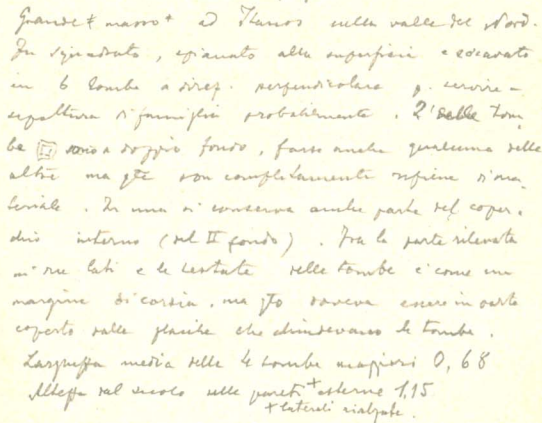 Grande masso + ad Ilanos nella valle del Nord.
Fu squadrato, spianato alla superficie e escavato
in 6 tombe a direz. perpendicolare p. servire a
sepoltura di famiglia probabilmente. 2 delle tom
be sono a doppio fondo, forse anche qualcuna delle
altre ma qte son completamente ripiene di ma
teriale. In una si conserva anche parte del coper.
chio interno (del II fondo). Fra la parte rilevata
nei due lati e le testate delle tombe è come un
margine di corsia, ma qto doveva essere in parte
coperto dalle placche che chiudevano le tombe.
Larghezza media delle 4 tombe maggiori 0,68
Altezza dal suolo delle pareti + esterne 1,15
+ laterali rialzate.